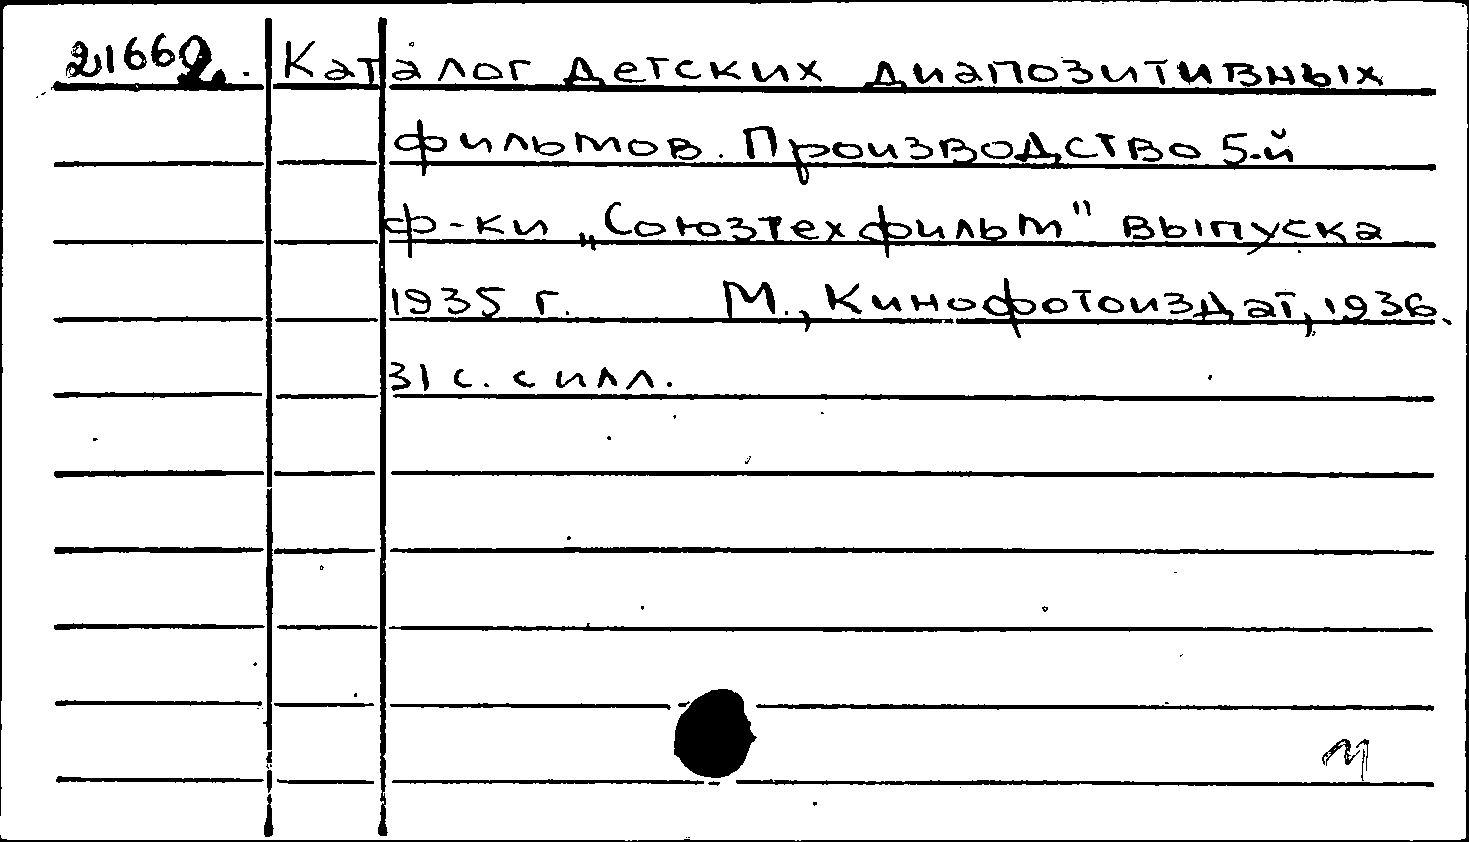 21662. Каталог детских диапозитивных
фильмов. Производство 5-й
ф-ки „Союзтехфильм" выпуска
1935 г. М., Кинофотоиздат, 1936.
31 с. с илл.